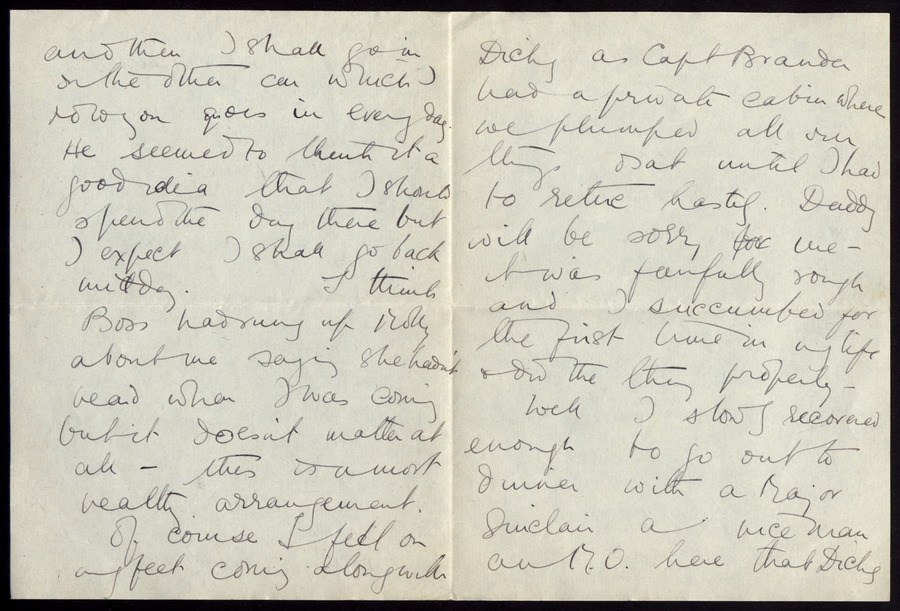 and then I shall go in
in the other car which I
told you goes in every day.
He seemed to think it a
good idea that I should
spend the day there but
I expect I shall go back
midday. I think
Boss had rung up Molly
about me saying she hadn't
heard when I was coming
but it doesn't matter at
all – this is a most
healthy arrangement.
Of course I fell on
my feet coming along with
Dicky as Capt Brander
had a private cabin where
we plumped all our
things & sat until I had
to retire hastily. Daddy
will be sorry for me –
it was fearfully rough
and I succumbed for
the first time in my life
& did the thing properly –
Well I slowly recovered
enough to go out to
dinner with a Major
Sinclair a nice man
an M.O. here that Dicky